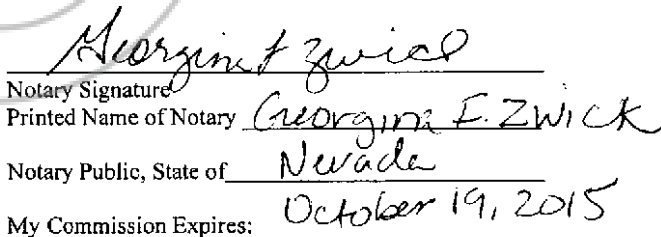 Georgina F Zwick
Notary Signature
Printed Name of Notary Georgina F. Zwick
Notary Public, State of Nevada
My Commission Expires: October 19, 2015